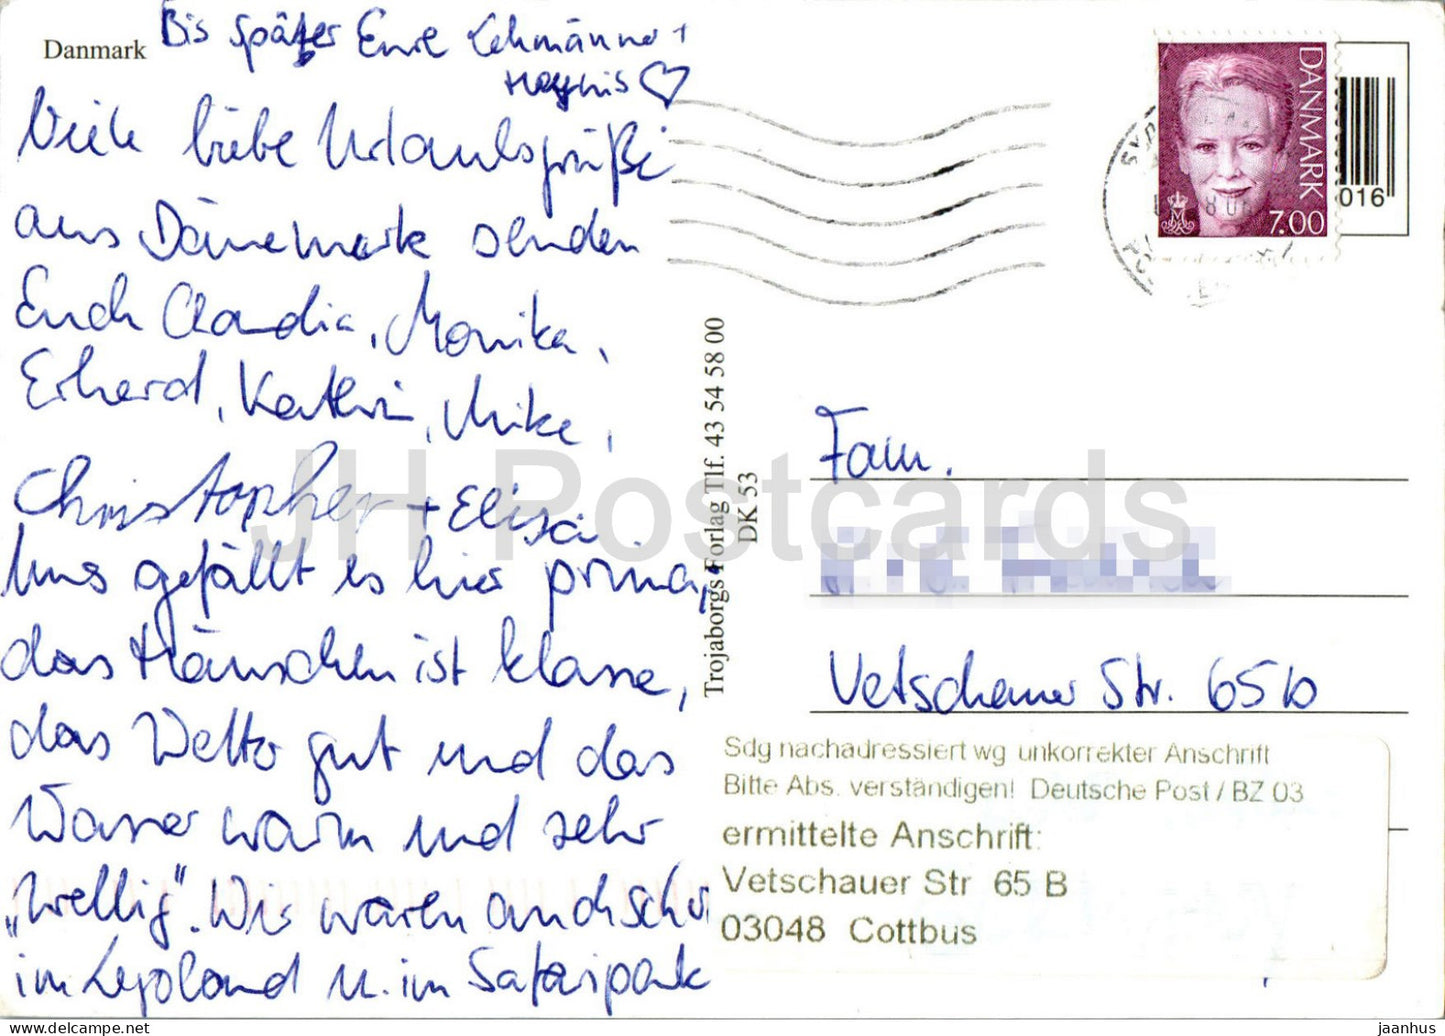 Danmark
Bis später Eure Lehmänner +
Viele liebe Urlaubsgrüße
aus Dänemark senden
Euch Claudia, Monika,
Erhard, Kathrin, Mike,
Christopher + Elisa.
Uns gefällt es hier prima,
das Häuschen ist klasse,
das Wetter gut und das
Wasser warm und sehr
„wellig“. Wir waren auch schon
im Legoland u. im Safaripark
Trojaborgs Forlag Tlf. 43 54 58 00
DK 53
DANMARK
7.00
016
Fam.
Vetschauer Str. 65b
Sdg nachadressiert wg unkorrekter Anschrift
Bitte Abs. verständigen! Deutsche Post / BZ 03
ermittelte Anschrift:
Vetschauer Str 65 B
03048 Cottbus
JH Postcards
www.delcampe.net
jaanhus